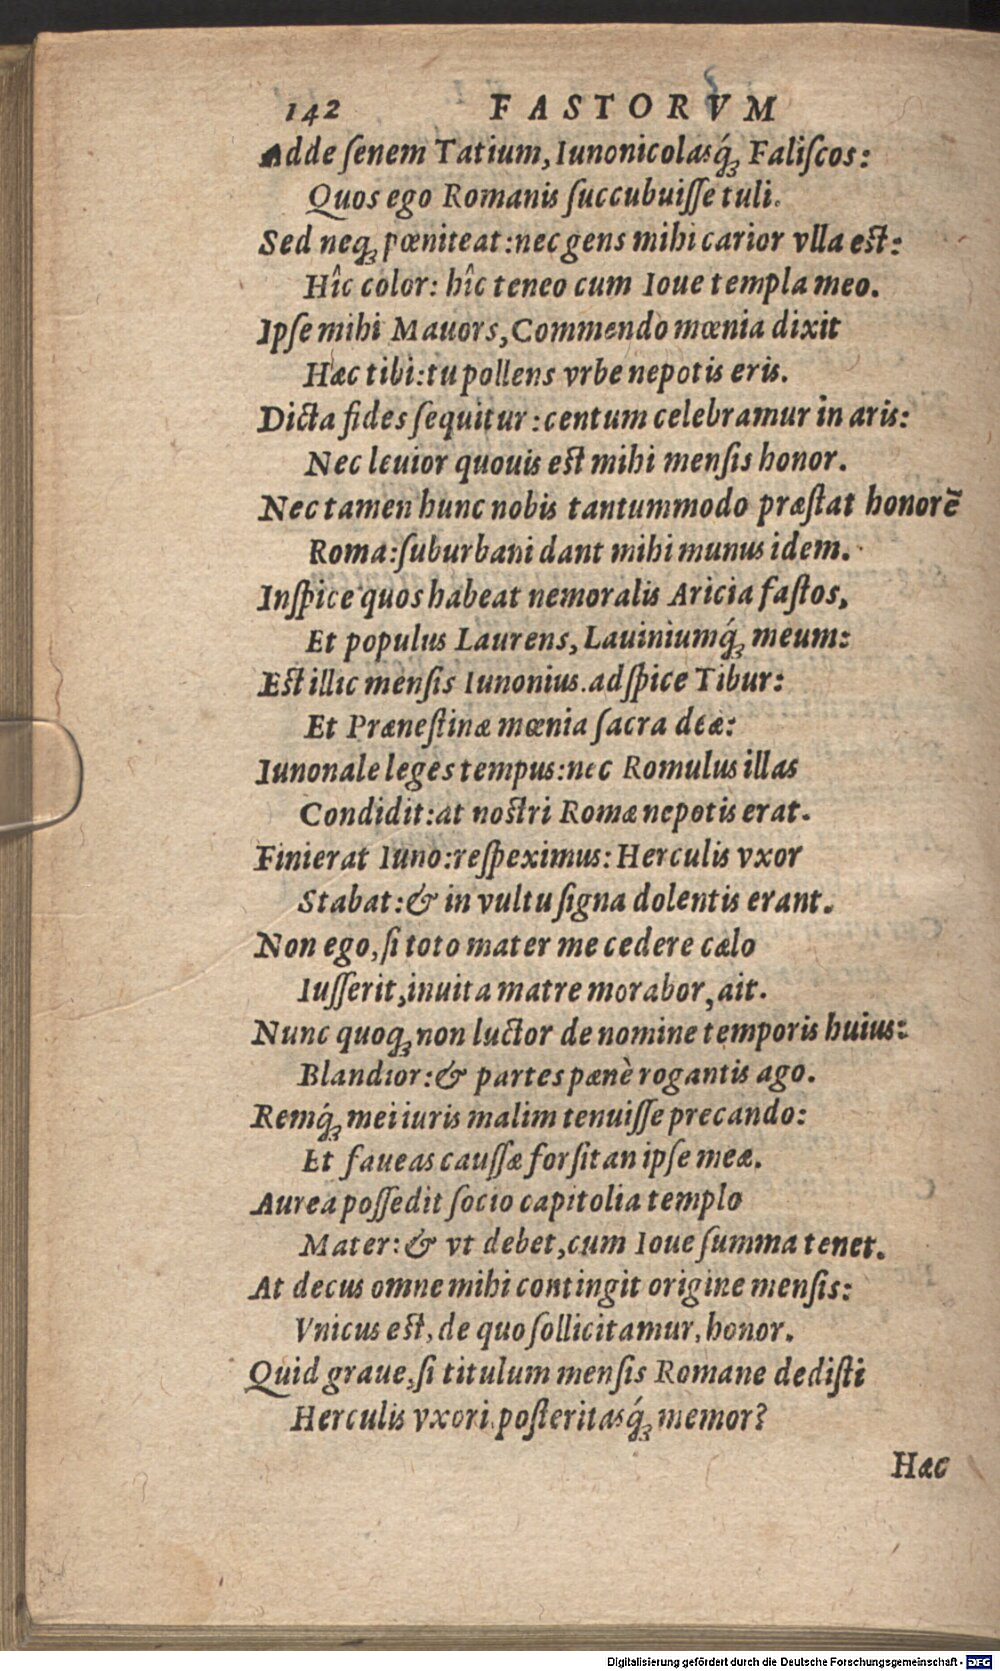 142 FASTORVM
Adde ſenem Tatium, Iunonicolasq́; Faliſcos:
Quos ego Romanis ſuccubuiſſe tuli.
Sed neq; pœniteat: nec gens mihi carior vlla est:
Hîc color: hîc teneo cum Ioue templa meo.
Ipſe mihi Mauors, Commendo mœnia dixit
Hæc tibi: tu pollens vrbe nepotis eris.
Dicta fides ſequitur: centum celebramur in aris:
Nec leuior quouis est mihi menſis honor.
Nec tamen hunc nobis tantummodo præſtat honorē
Roma: ſuburbani dant mihi munus idem.
Inſpice quos habeat nemoralis Aricia faſtos,
Et populus Laurens, Lauiniumq́; meum:
Est illic menſis Iunonius. adſpice Tibur:
Et Præneſtinæ mœnia ſacra deæ:
Iunonale leges tempus: nec Romulus illas
Condidit: at nostri Romæ nepotis erat.
Finierat Iuno: reſpeximus: Herculis vxor
Stabat: & in vultu ſigna dolentis erant.
Non ego, ſi toto mater me cedere cælo
Iuſſerit, inuita matre morabor, ait.
Nunc quoq; non luctor de nomine temporis huius:
Blandior: & partes pænè rogantis ago.
Remq́; mei iuris malim tenuiſſe precando:
Et faueas cauſſæ forſitan ipſe meæ.
Aurea poſſedit ſocio capitolia templo
Mater: & vt debet, cum Ioue ſumma tenet.
At decus omne mihi contingit origine menſis:
Vnicus est, de quo ſollicitamur, honor.
Quid graue, ſi titulum menſis Romane dediſti
Herculis vxori, poſteritasq́; memor?
Hæc
Digitalisierung gefördert durch die Deutsche Forschungsgemeinschaft - DFG